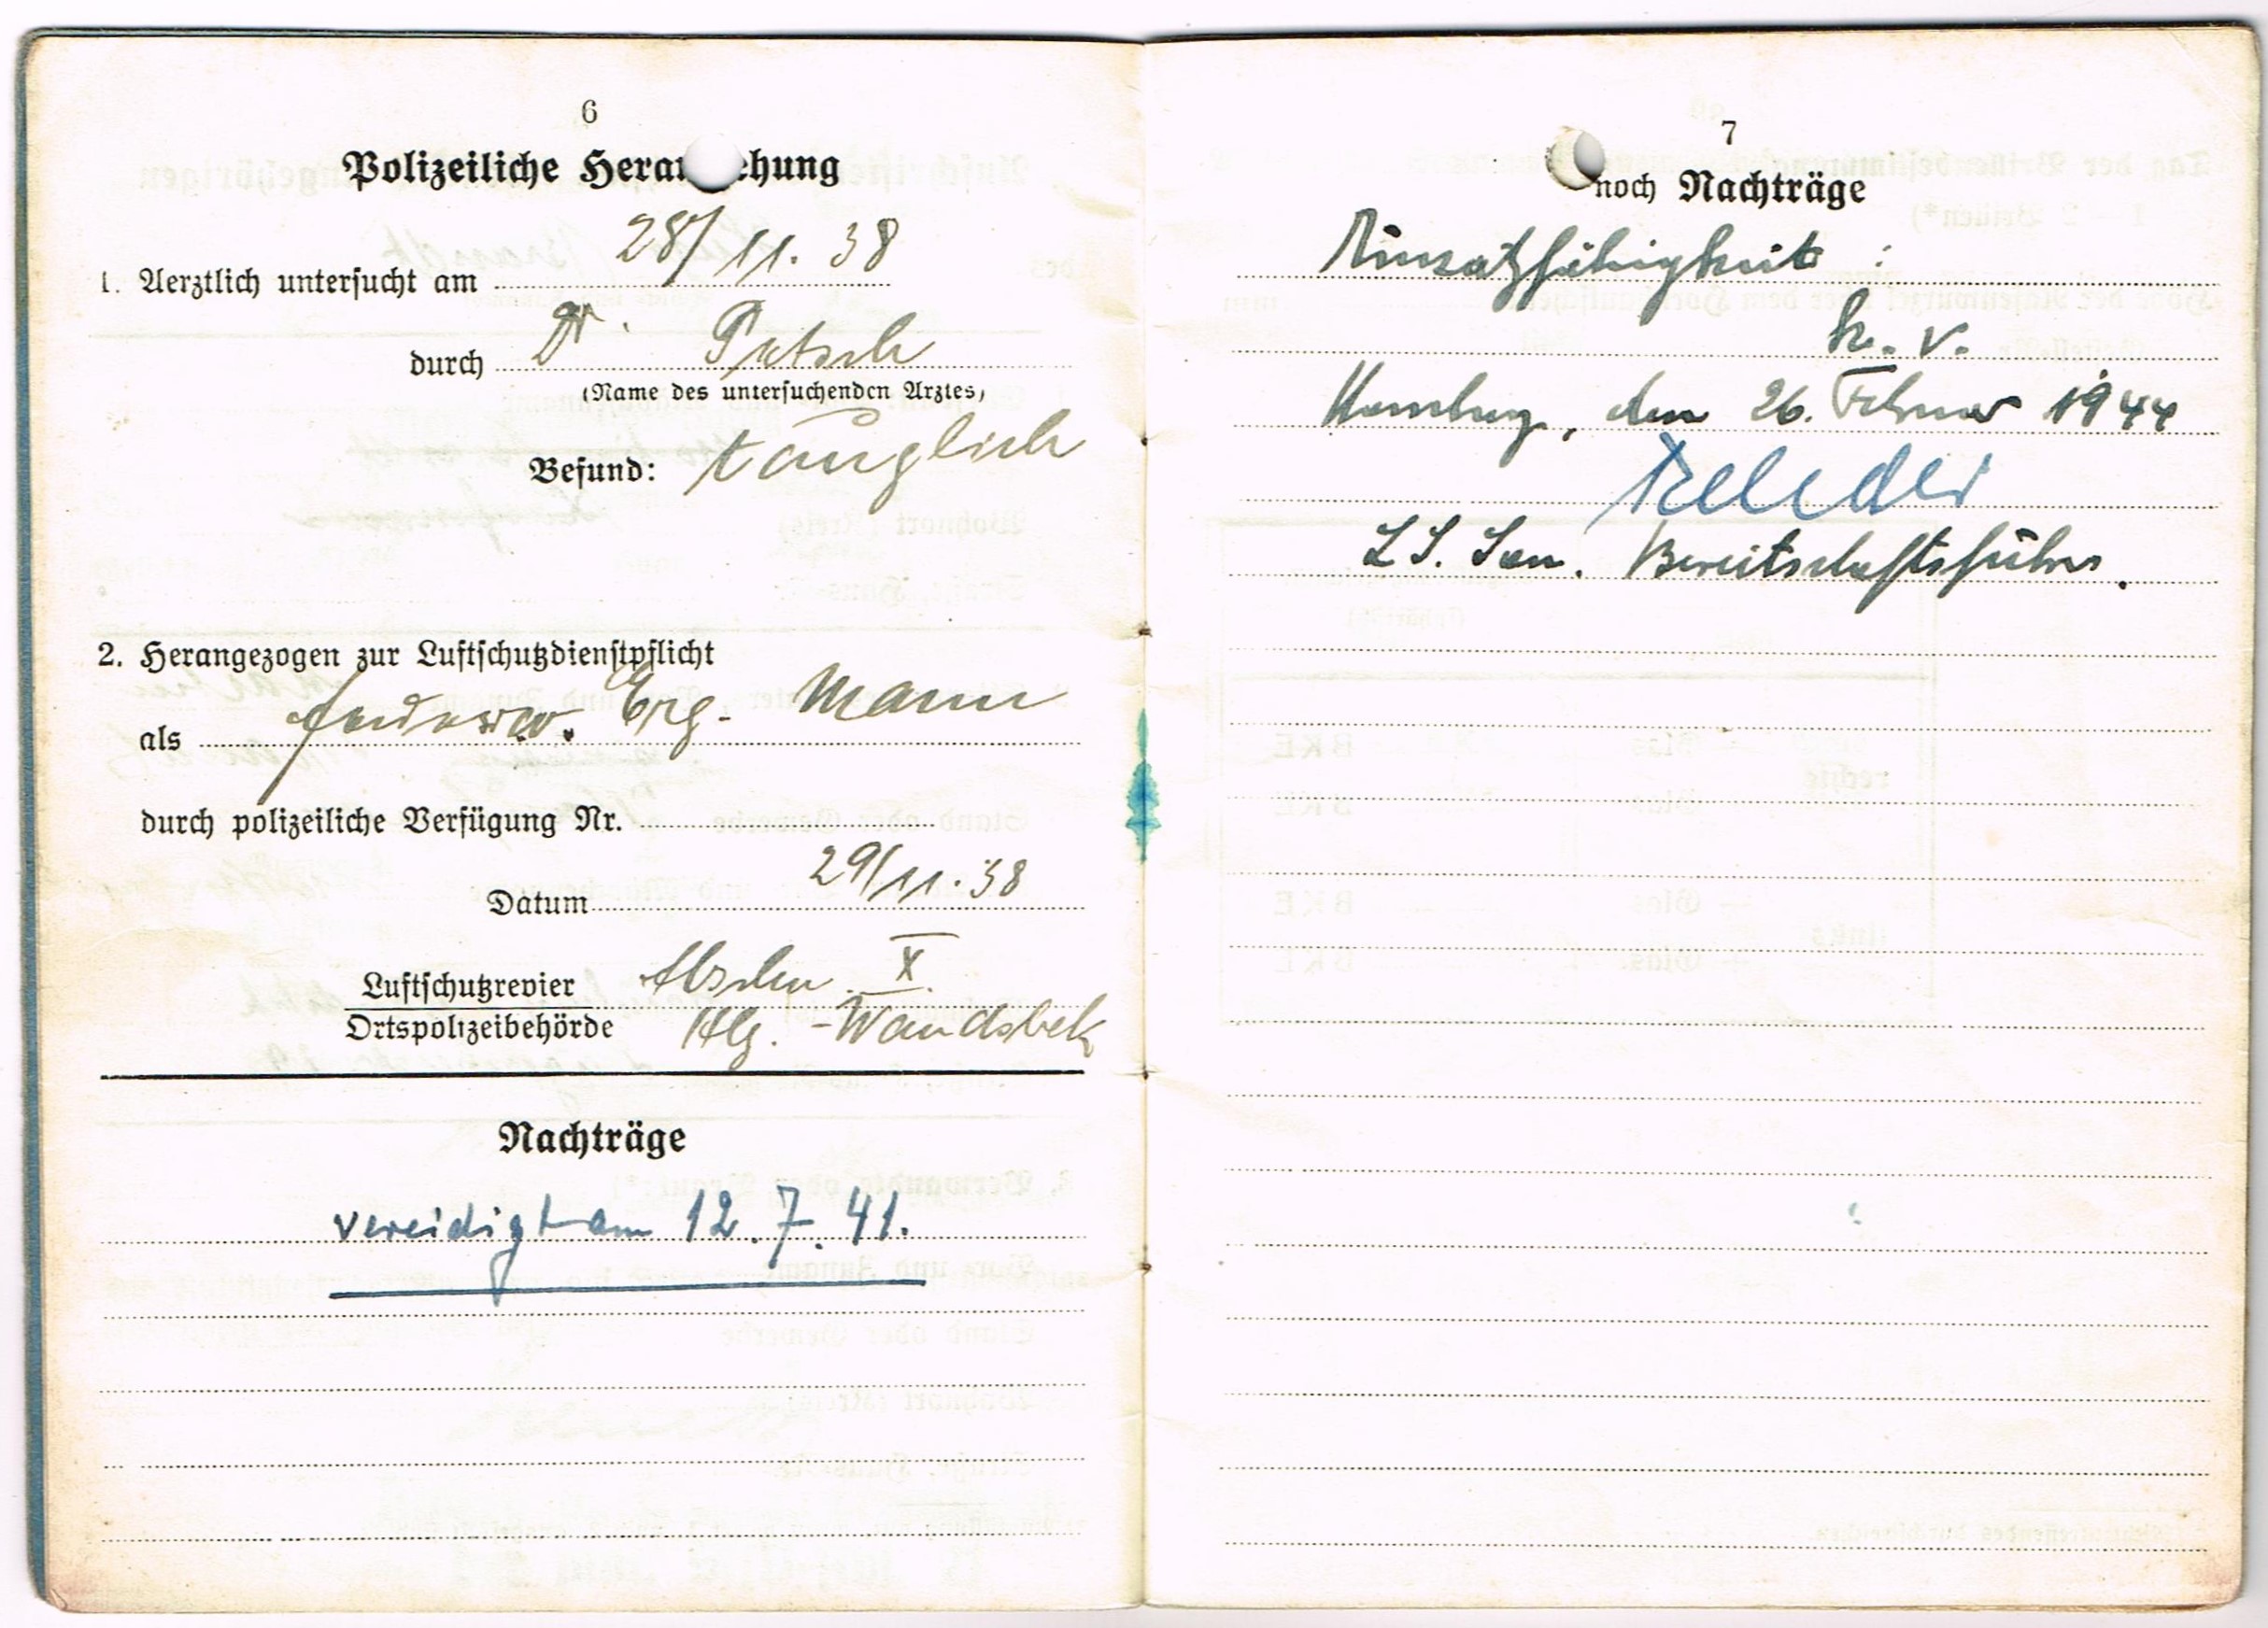 6
Polizeiliche Heran ehung
28/11. 38
1. Aerztlich untersucht am
durch Dr. Petsch
(Name des untersuchenden Arztes)
Befund: tauglich
2. Herangezogen zur Luftschutzdienstpflicht
als Erg. Mann
durch polizeiliche Verfügung Nr.
Datum 29/11. 38
Luftschutzrevier Abschn. X.
Ortspolizeibehörde Hbg. - Wandsbek
Nachträge
vereidigt am 12.7.41.
7
noch Nachträge
Einsatzfähigkeit :
k. v.
Hamburg, den 26. Februar 1944
LS. San. Bereitschaftsführer.